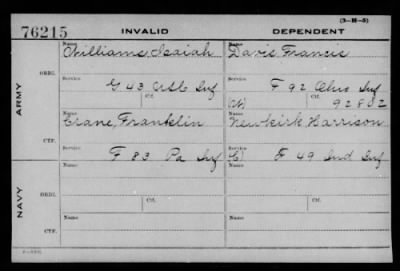 (3-H-5)
76215 INVALID DEPENDENT
Name Name
Williams, Isaiah Davis Francis
ORIG.
Service Service
G 43 Inf F 92 Ohio Inf
Ctf. Ctf.
92802
ARMY
Name Name
Crane, Franklin Newkirk Harrison
CTF.
Service Service
F 83 Pa Inf F 49 Ind Inf
Name Name
ORIG.
Ctf. Ctf.
NAVY
Name Name
CTF.